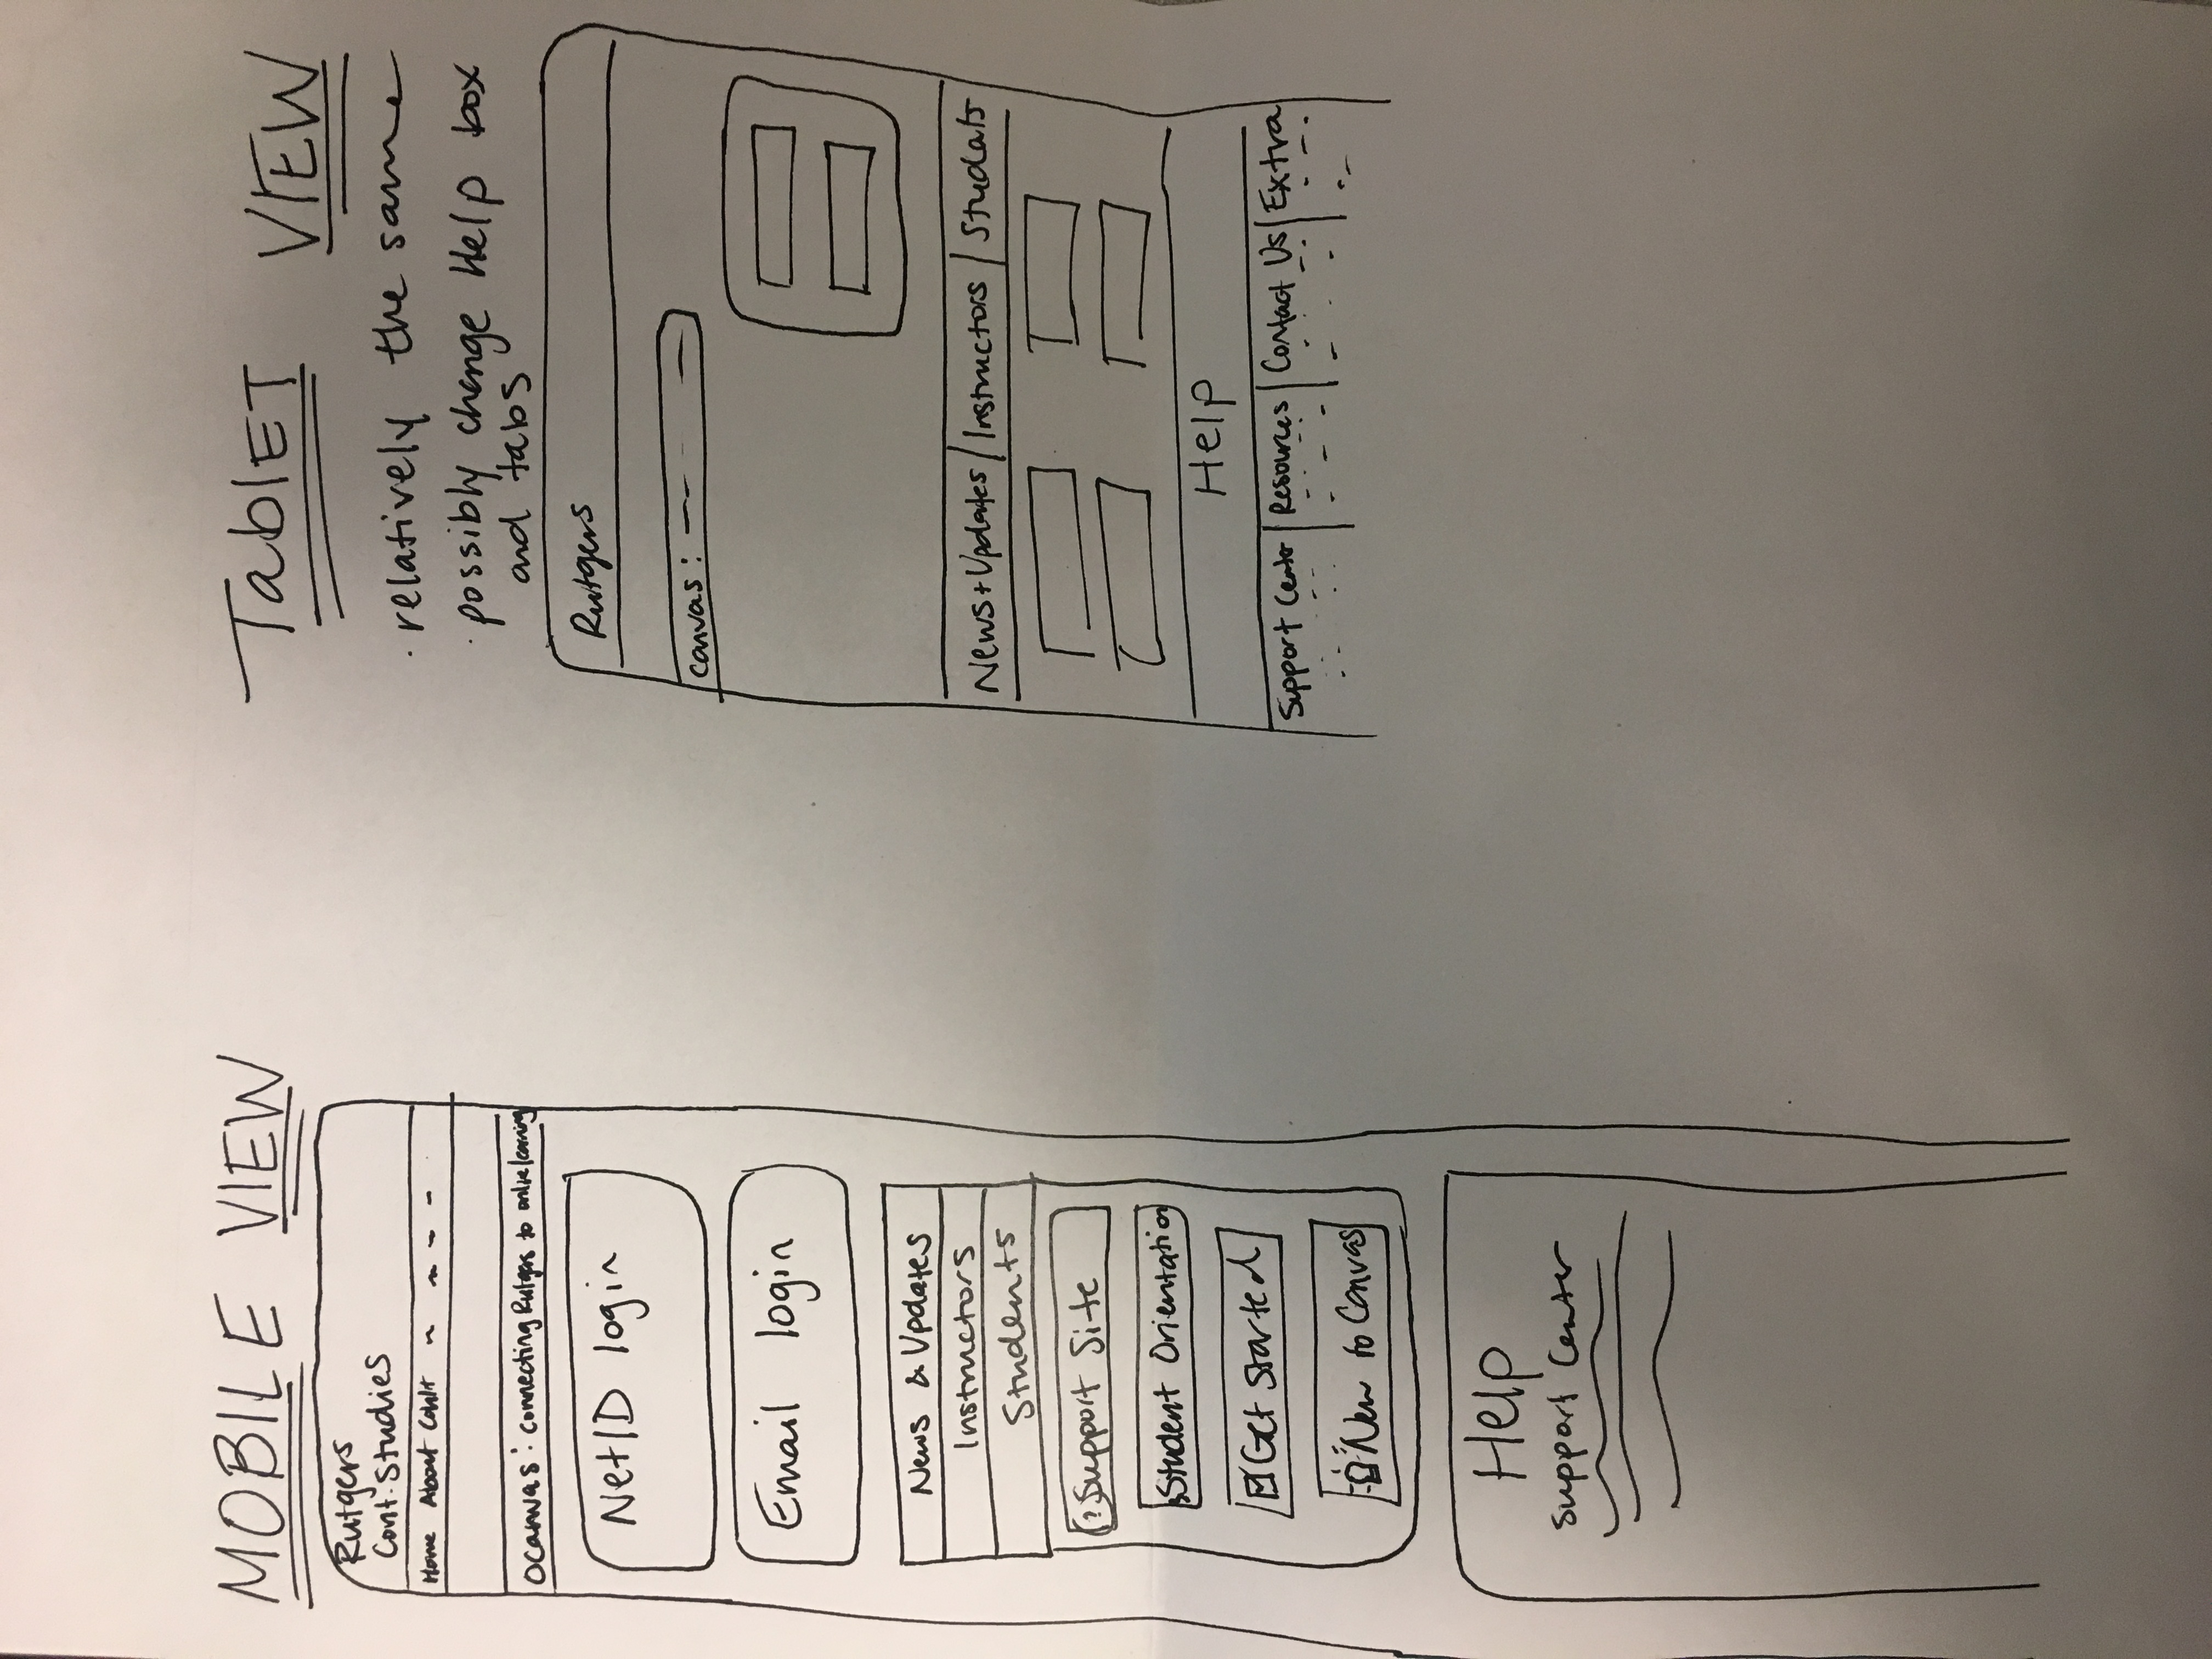 MOBILE VIEW
Rutgers
Cont. Studies
Home About
Canvas: connecting Rutgers to online learning
NetID login
Email login
News & Updates
Instructors
Students
? Support Site
Student Orientation
Get Started
New to Canvas
Help
Support Center
TablET VIEW
· relatively the same
· possibly change Help box
and tabs
Rutgers
Canvas:
News + Updates Instructors Students
Help
Support Center Resources Contact Us Extra